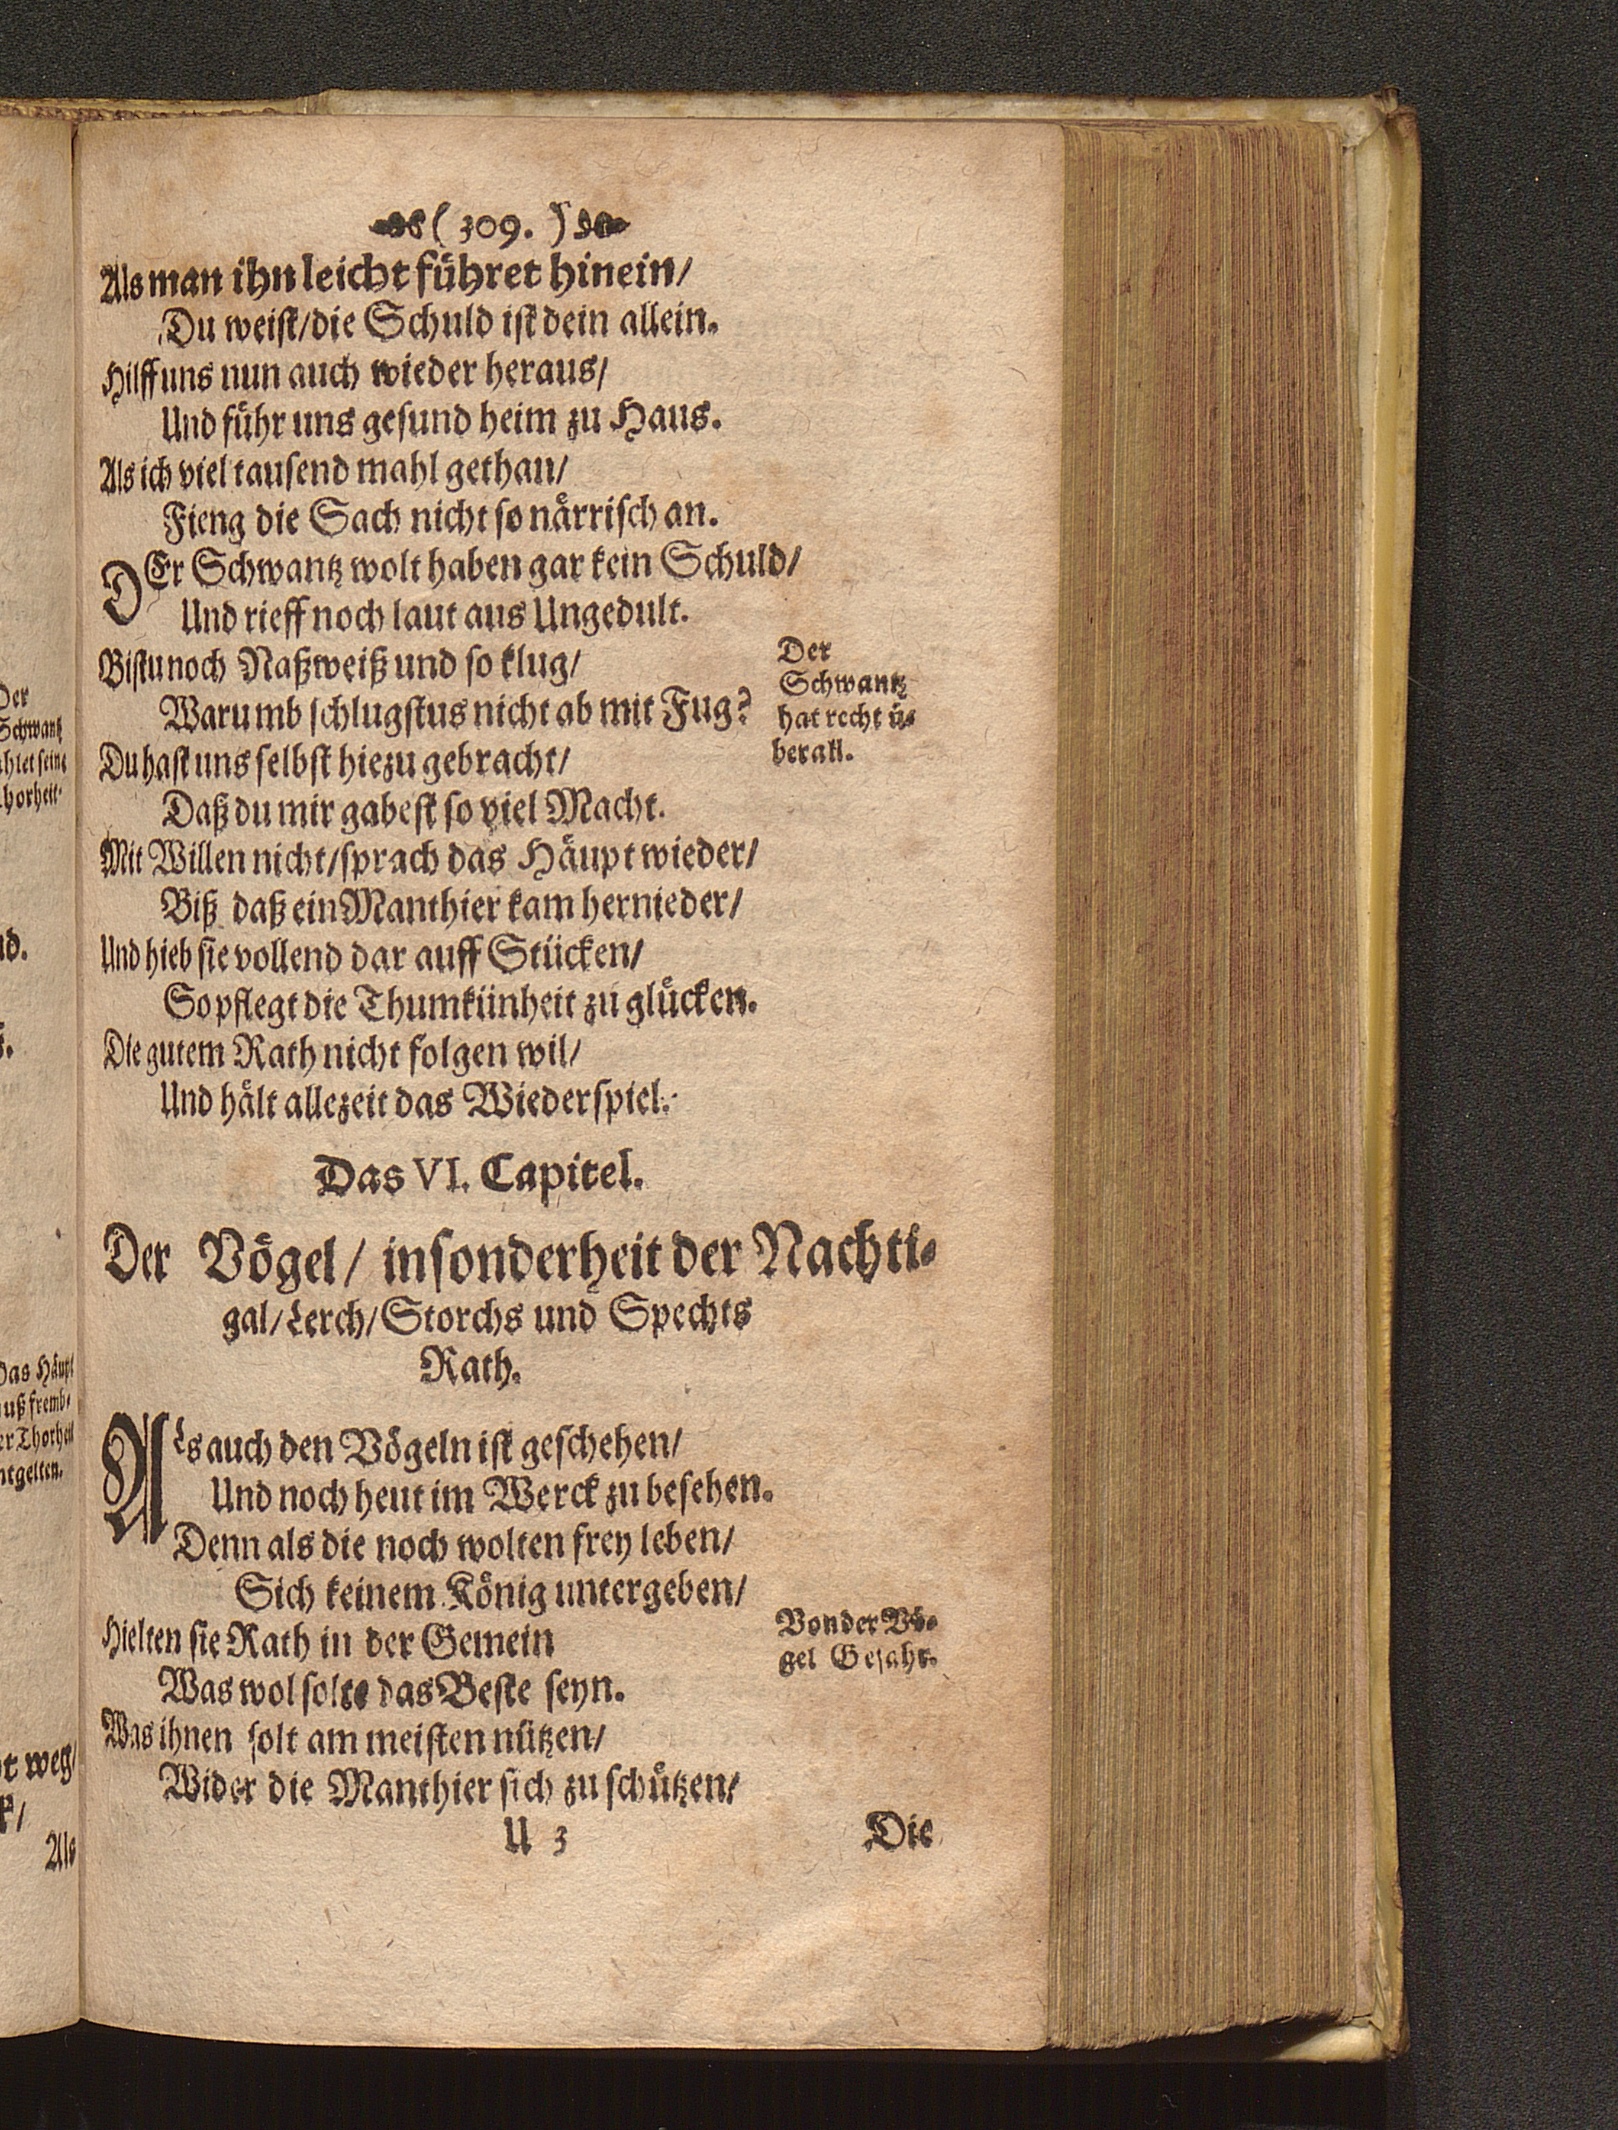 ( 309. )
Als man ihn leicht führet hinein/
Du weist/die Schuld ist dein allein.
Hilff uns nun auch wieder heraus/
Und führ uns gesund heim zu Haus.
Als ich viel tausend mahl gethan/
Fieng die Sach nicht so närrisch an.
DEr Schwantz wolt haben gar kein Schuld/
Und rieff noch laut aus Ungedult.
Bistu noch Naßweiß und so klug/
Warumb schlugstus nicht ab mit Fug?
Du hast uns selbst hiezu gebracht/
Daß du mir gabest so viel Macht.
Der
Schwantz
hat recht ü-
berall.
Mit Willen nicht/sprach das Häupt wieder/
Biß daß ein Manthier kam hernieder/
Und hieb sie vollend dar auff Stücken/
So pflegt die Thumkünheit zu glücken.
Die gutem Rath nicht folgen wil/
Und hält allezeit das Wiederspiel.
Das VI. Capitel.
Der Vögel/ insonderheit der Nachti-
gal/Lerch/Storchs und Spechts
Rath.
ALs auch den Vögeln ist geschehen/
Und noch heut im Werck zu besehen.
Denn als die noch wolten frey leben/
Sich keinem König untergeben/
Hielten sie Rath in der Gemein
Was wol solte das Beste seyn.
Von der Vö-
gel Gefahr.
Was ihnen solt am meisten nützen/
Wider die Manthier sich zu schützen/
U 3
Die
Der
Schwantz
seine
Das Häupt
Als